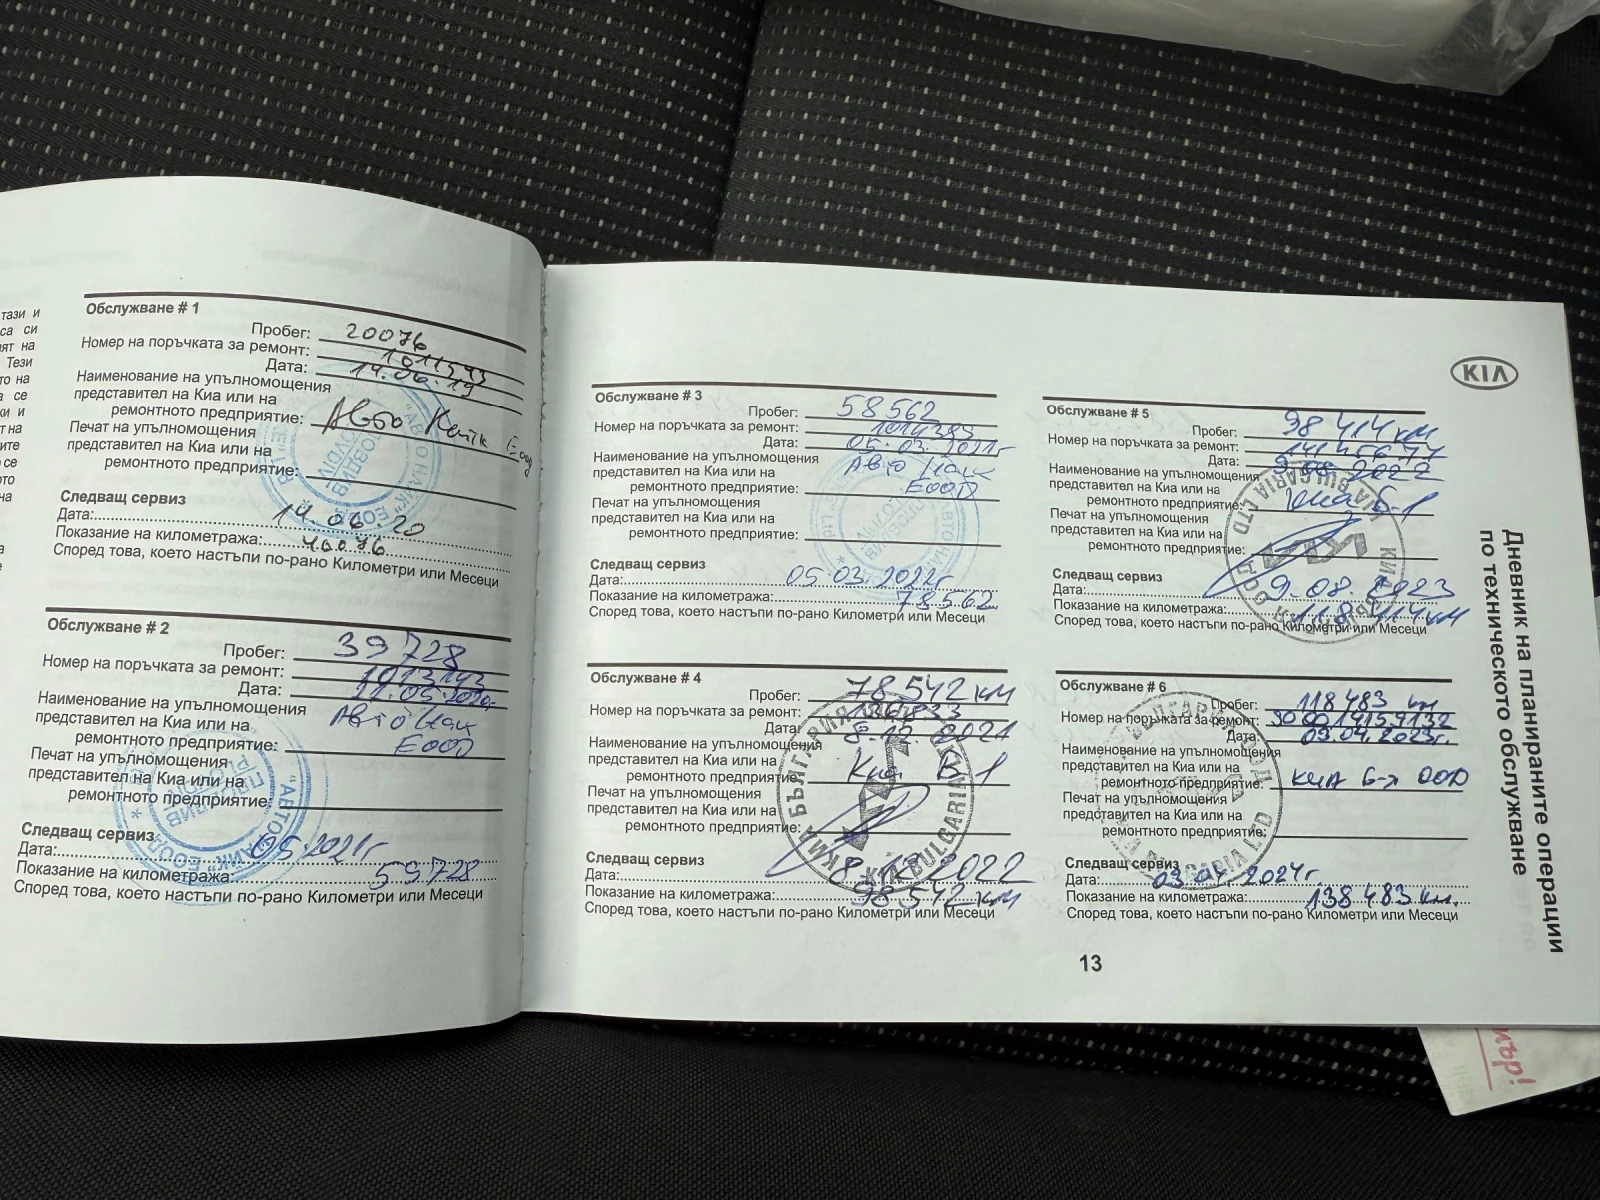 тази и
са си
ят на
Тези
то на
а се
ки и
т на
ите
о се
ото
на
Обслужване # 1
Пробег: 20076
Номер на поръчката за ремонт: 1011593
Дата: 14.06.19
Наименование на упълномощения
представител на Киа или на
ремонтното предприятие: Авто Еоод
Печат на упълномощения
представител на Киа или на
ремонтното предприятие:
Следващ сервиз
Дата: 14.06.20
Показание на километража: 40076
Според това, което настъпи по-рано Километри или Месеци
Обслужване # 2
Пробег: 39728
Номер на поръчката за ремонт: 1013143
Дата: 05.2020
Наименование на упълномощения
представител на Киа или на
ремонтното предприятие: Авто ЕООД
Печат на упълномощения
представител на Киа или на
ремонтното предприятие:
Следващ сервиз
Дата: 05 2021г
Показание на километража: 59728
Според това, което настъпи по-рано Километри или Месеци
Обслужване # 3
Пробег: 58562
Номер на поръчката за ремонт:
Дата: 05.03.2021г
Наименование на упълномощения
представител на Киа или на
ремонтното предприятие: Авто ЕООД
Печат на упълномощения
представител на Киа или на
ремонтното предприятие:
Следващ сервиз
Дата: 05.03.2022г
Показание на километража: 78562
Според това, което настъпи по-рано Километри или Месеци
Обслужване # 4
Пробег: 78 542 км
Номер на поръчката за ремонт:
Дата: 8.12.2021
Наименование на упълномощения
представител на Киа или на
ремонтното предприятие: Киа
Печат на упълномощения
представител на Киа или на
ремонтното предприятие:
КИА БЪЛГАРИЯ
KIA BULGARIA
Следващ сервиз
Дата: 8.12.2022
Показание на километража: 98542 км
Според това, което настъпи по-рано Километри или Месеци
Обслужване # 5
Пробег: 98 414 км
Номер на поръчката за ремонт:
Дата: 9.08.2022
Наименование на упълномощения
представител на Киа или на
ремонтното предприятие: Киа
Печат на упълномощения
представител на Киа или на
ремонтното предприятие:
KIA BULGARIA LTD
Следващ сервиз
Дата: 9.08.2023
Показание на километража: 118 414 км
Според това, което настъпи по-рано Километри или Месеци
Обслужване # 6
Пробег: 118 483 км
Номер на поръчката за ремонт:
Дата: 03.04.2023г.
Наименование на упълномощения
представител на Киа или на
ремонтното предприятие: КИА Б-я ООД
Печат на упълномощения
представител на Киа или на
ремонтното предприятие:
Следващ сервиз
Дата: 03.04.2024г
Показание на километража: 138 483 км.
Според това, което настъпи по-рано Километри или Месеци
13
KIA
Дневник на планираните операции
по техническото обслужване